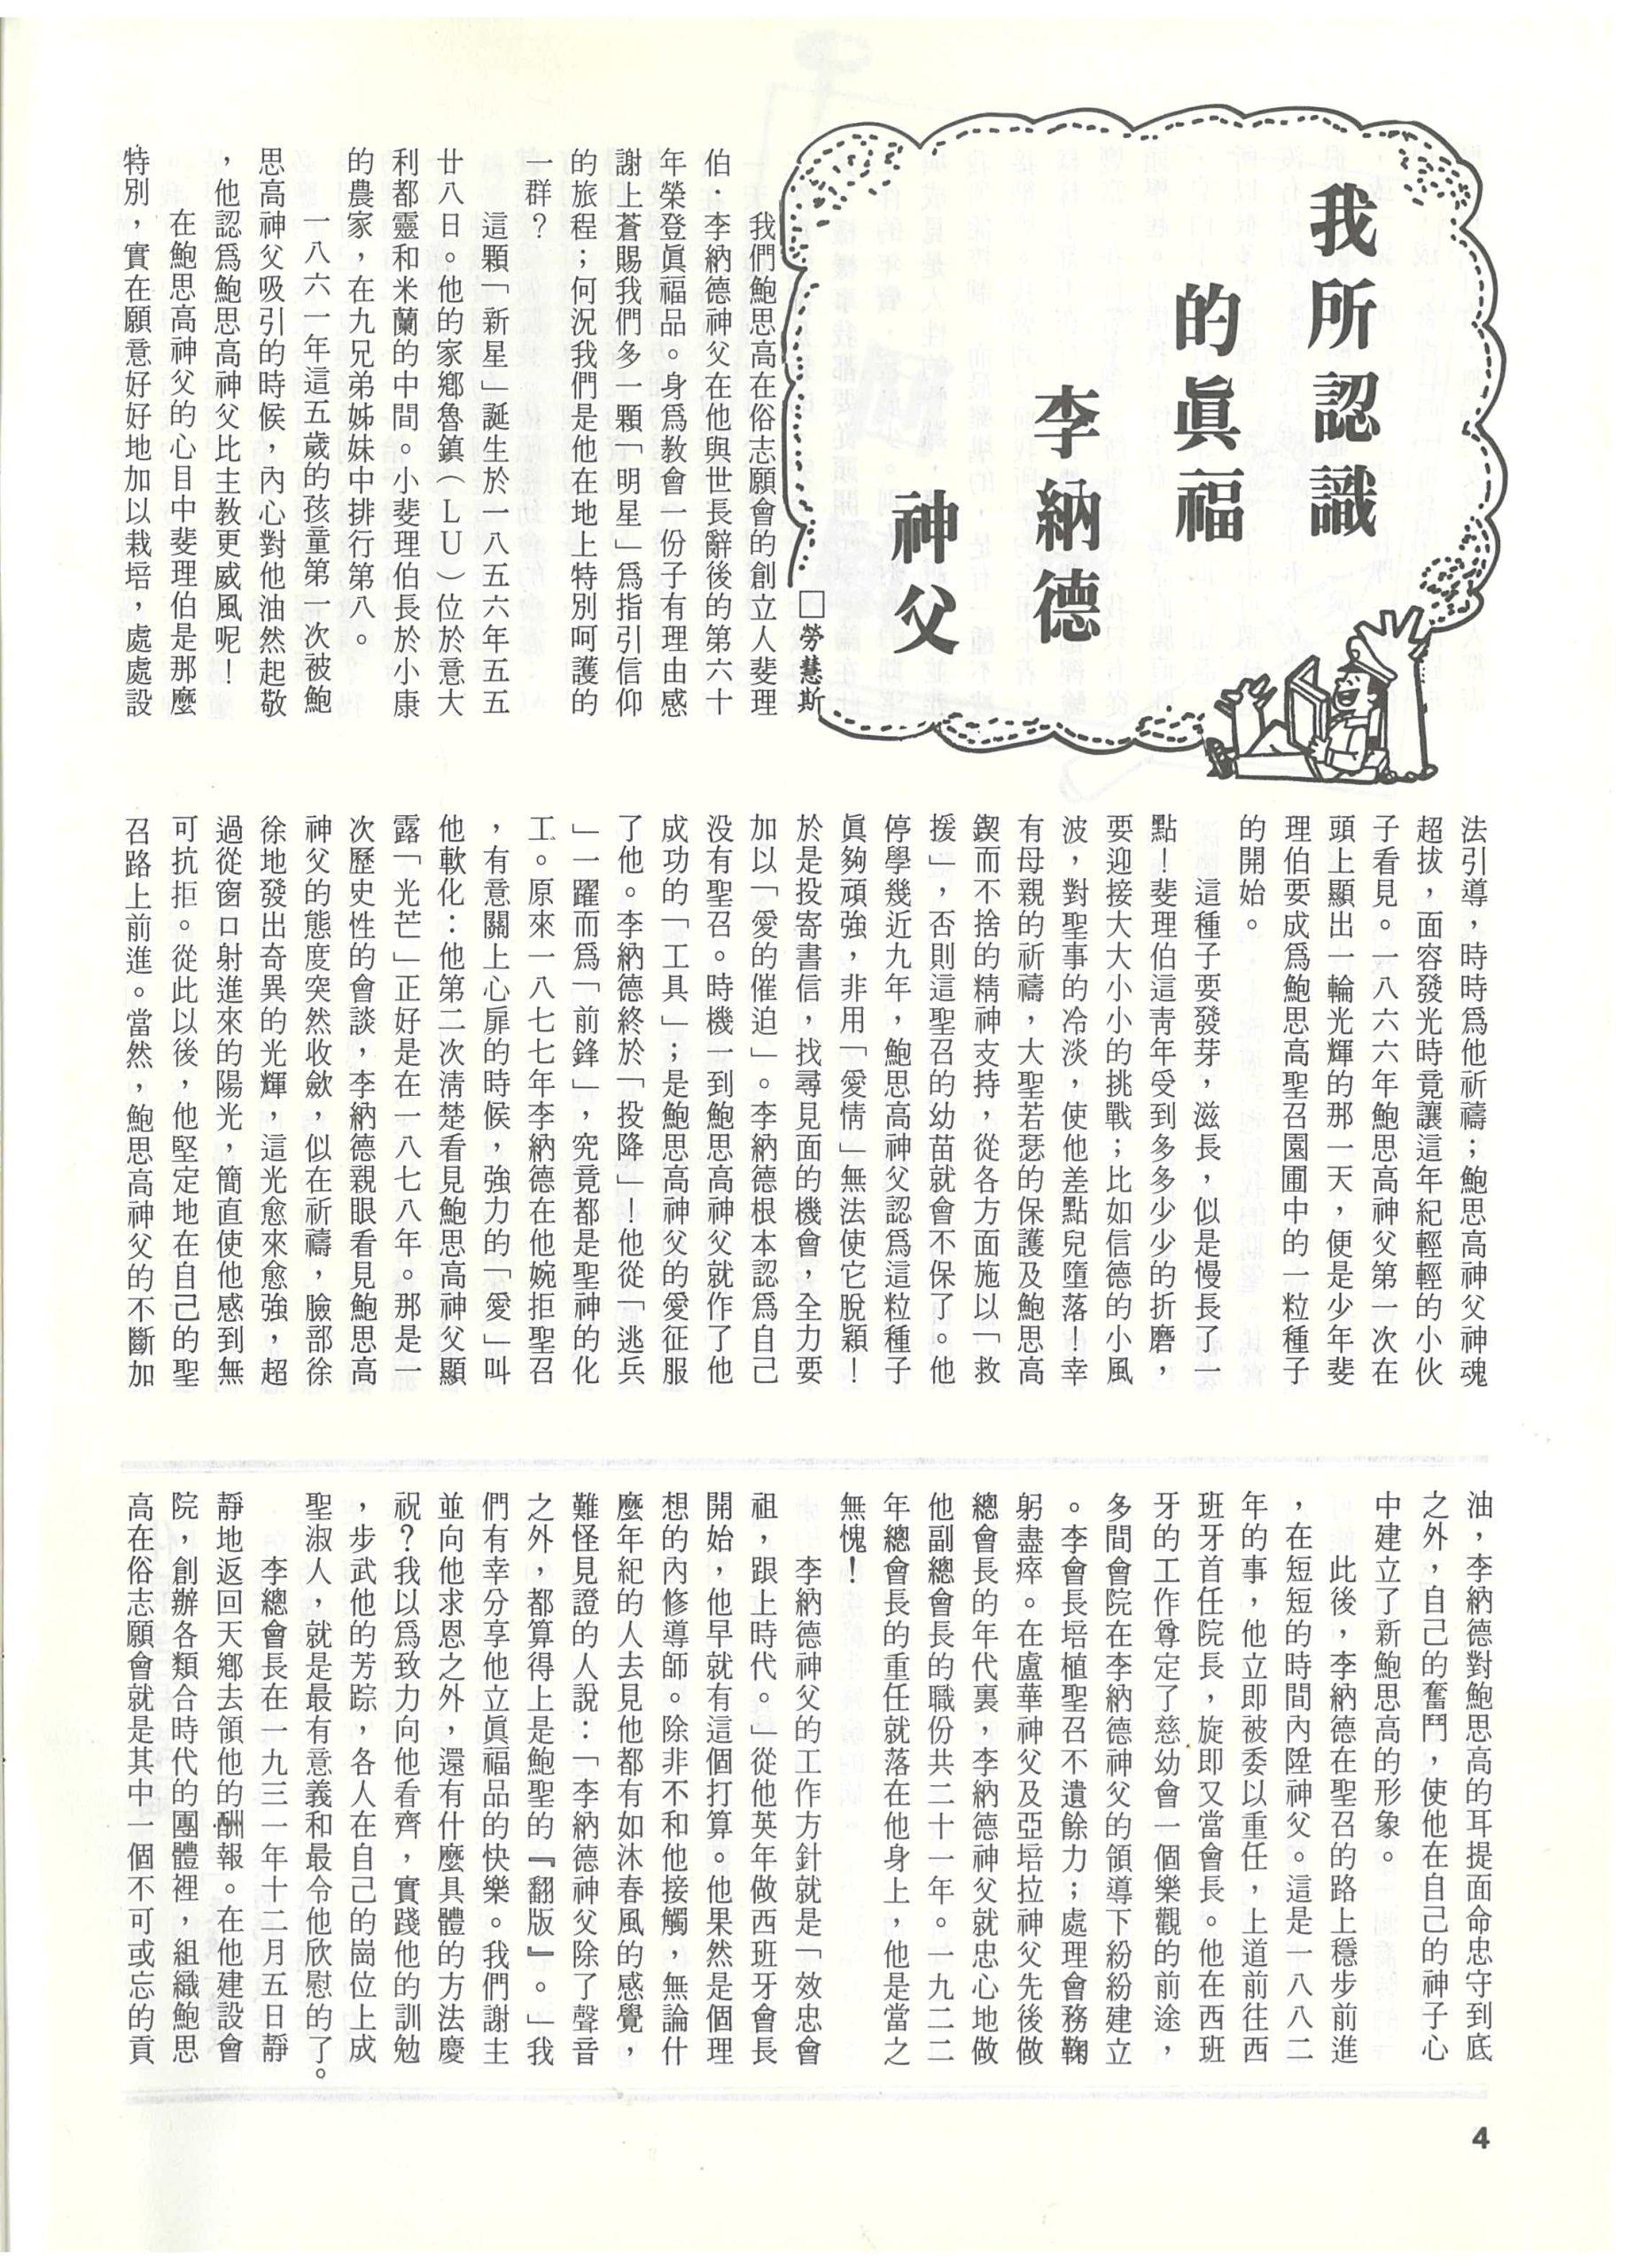 我所認識
的眞福
李納德
神父
□勞慧斯
我們鮑思高在俗志願會的創立人斐理
伯：李納德神父在他與世長辭後的第六十
年榮登眞福品。身爲教會一份子有理由感
謝上蒼賜我們多一顆「明星」爲指引信仰
的旅程；何況我們是他在地上特別呵護的
一群？
這顆「新星」誕生於一八五六年五五
廿八日。他的家鄉魯鎮（LU）位於意大
利都靈和米蘭的中間。小斐理伯長於小康
的農家，在九兄弟姊妹中排行第八。
一八六一年這五歲的孩童第一次被鮑
思高神父吸引的時候，內心對他油然起敬
，他認爲鮑思高神父比主教更威風呢！
在鮑思高神父的心目中斐理伯是那麼
特別，實在願意好好地加以栽培，處處設
法引導，時時爲他祈禱；鮑思高神父神魂
超拔，面容發光時竟讓這年紀輕輕的小伙
子看見。一八六六年鮑思高神父第一次在
頭上顯出一輪光輝的那一天，便是少年斐
理伯要成爲鮑思高聖召園圃中的一粒種子
的開始。
這種子要發芽，滋長，似是慢長了一
點！斐理伯這靑年受到多多少少的折磨，
要迎接大大小小的挑戰；比如信德的小風
波，對聖事的冷淡，使他差點兒墮落！幸
有母親的祈禱，大聖若瑟的保護及鮑思高
鍥而不捨的精神支持，從各方面施以「救
援」，否則這聖召的幼苗就會不保了。他
停學幾近九年，鮑思高神父認爲這粒種子
眞夠頑強，非用「愛情」無法使它脫穎！
於是投寄書信，找尋見面的機會，全力要
加以「愛的催迫」。李納德根本認爲自己
没有聖召。時機一到鮑思高神父就作了他
成功的「工具」；是鮑思高神父的愛征服
了他。李納德終於「投降」！他從「逃兵
」一躍而爲「前鋒」，究竟都是聖神的化
工。原來一八七七年李納德在他婉拒聖召
，有意關上心扉的時候，強力的「愛」叫
他軟化：他第二次淸楚看見鮑思高神父顯
露「光芒」正好是在一八七八年。那是一
次歷史性的會談，李納德親眼看見鮑思高
神父的態度突然收斂，似在祈禱，臉部徐
徐地發出奇異的光輝，這光愈來愈強，超
過從窗口射進來的陽光，簡直使他感到無
可抗拒。從此以後，他堅定地在自己的聖
召路上前進。當然，鮑思高神父的不斷加
油，李納德對鮑思高的耳提面命忠守到底
之外，自己的奮鬥，使他在自己的神子心
中建立了新鮑思高的形象。
此後，李納德在聖召的路上穩步前進
，在短短的時間內陞神父。這是一八八二
年的事，他立即被委以重任，上道前往西
班牙首任院長，旋即又當會長。他在西班
牙的工作奠定了慈幼會一個樂觀的前途，
多間會院在李納德神父的領導下紛紛建立
。李會長培植聖召不遺餘力；處理會務鞠
躬盡瘁。在盧華神父及亞培拉神父先後做
總會長的年代裏，李納德神父就忠心地做
他副總會長的職份共二十一年。一九二二
年總會長的重任就落在他身上，他是當之
無愧！
李納德神父的工作方針就是「效忠會
祖，跟上時代。」從他英年做西班牙會長
開始，他早就有這個打算。他果然是個理
想的內修導師。除非不和他接觸，無論什
麼年紀的人去見他都有如沐春風的感覺，
難怪見證的人說：「李納德神父除了聲音
之外，都算得上是鮑聖的『翻版』。」我
們有幸分享他立眞福品的快樂。我們謝主
並向他求恩之外，還有什麼具體的方法慶
祝？我以爲致力向他看齊，實踐他的訓勉
，步武他的芳踪，各人在自己的崗位上成
聖淑人，就是最有意義和最令他欣慰的了。
李總會長在一九三一年十二月五日靜
靜地返回天鄉去領他的酬報。在他建設會
院，創辦各類合時代的團體裡，組織鮑思
高在俗志願會就是其中一個不可或忘的貢
4